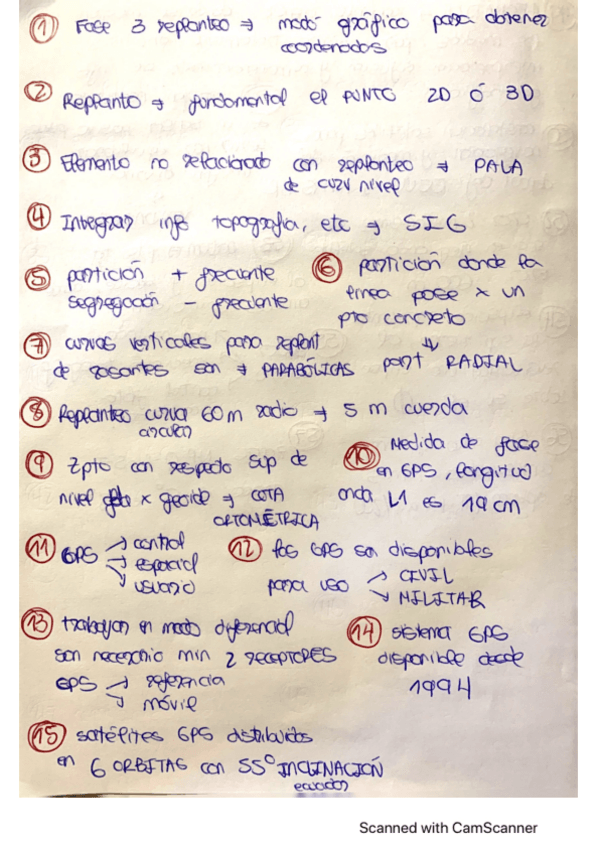 ① Fase 3 replanteo → modo gráfico para obtener
coordenadas
② Replanto → fundamental el PUNTO 2D ó 3D
③ Elemento no relacionado con replanteo → PALA
de curv nivel
④ Integran info topografia, etc → SIG
⑤ partición + frecuente
segregación - frecuente
⑥ partición donde la
línea pase x un
pto concreto
↓
part RADIAL
⑦ curvas verticales para replant
de rasantes son → PARABÓLICAS
⑧ Replanteo curva 60m radio → 5 m cuerda
circular
⑨ Z pto con respecto sup de
nivel x geoide → COTA
ORTOMÉTRICA
⑩ Medida de fase
en GPS, longitud
onda L1 es 19 cm
⑪ GPS → control
→ espacial
→ usuario
⑫ los GPS son disponibles
para uso → CIVIL
→ MILITAR
⑬ trabajar en modo diferencial
son necesario min 2 RECEPTORES
GPS → referencia
→ móvil
⑭ sistema GPS
disponible desde
1994
⑮ satélites GPS distribuidos
en 6 ORBITAS con 55° INCLINACIÓN
ecuador
Scanned with CamScanner